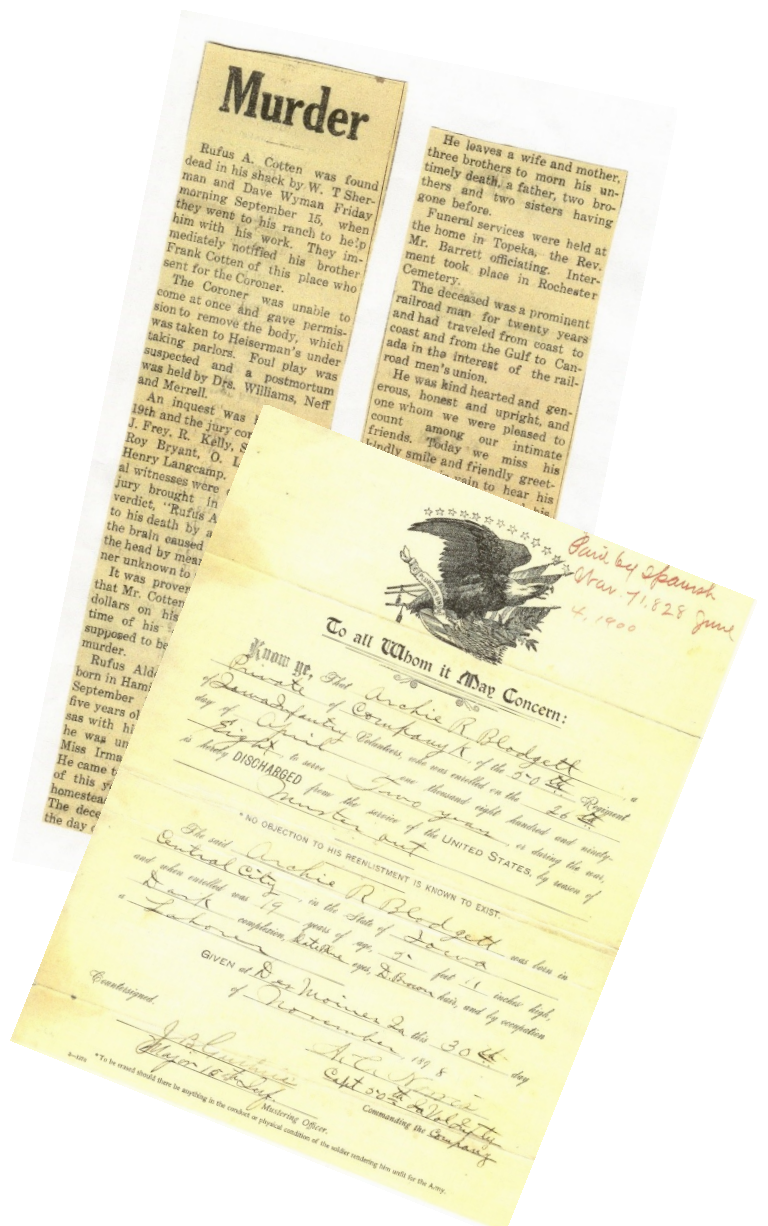 Murder
Rufus A. Cotten was found
dead in his shack by W. T Sher-
man and Dave Wyman Friday
morning September 15, when
they went to his ranch to help
him with his work. They im-
mediately notified his brother
Frank Cotten of this place who
sent for the Coroner.
The Coroner was unable to
come at once and gave permis-
sion to remove the body, which
was taken to Heiserman's under
taking parlors. Foul play was
suspected and a postmortum
was held by Drs. Williams, Neff
and Merrell.
An inquest was
19th and the jury
J. Frey, R. Kelly,
Roy Bryant, O.
Henry Langcamp.
al witnesses were
jury brought in
verdict, "Rufus A
to his death by a
the brain caused
the head by
ner unknown to
It was
that Mr. Cotten
dollars on his
time of his
supposed to be
murder.
Rufus
born in
September
five years
sas with
he was
Miss Irma
He came
of this
The
the day
He leaves a wife and mother,
three brothers to morn his un-
timely death, a father, two bro-
thers and two sisters having
gone before.
Funeral services were held at
the home in Topeka, the Rev.
Mr. Barrett officiating. Inter-
ment took place in Rochester
Cemetery.
The deceased was a prominent
railroad man for twenty years
and had traveled from coast to
coast and from the Gulf to Can-
ada in the interest of the rail-
road men's union.
He was kind hearted and gen-
erous, honest and upright, and
one whom we were pleased to
count among our intimate
friends. Today we miss his
kindly smile and friendly greet-
vain to hear his
his
Paid by Spanish
War. 71,828 June
4, 1900
To all Whom it May Concern:
Know ye, That Archie R Blodgett
Private of Company K, of the 50th Regiment
of Iowa Infantry Volunteers, who was enrolled on the 26th
day of April one thousand eight hundred and ninety-
eight to serve Two years, or during the war,
is hereby DISCHARGED from the service of the UNITED STATES, by reason of
Muster out
* NO OBJECTION TO HIS REENLISTMENT IS KNOWN TO EXIST.
The said Archie R Blodgett was born in
Central City, in the State of Iowa
and when enrolled was 19 years of age, 5 feet 11 inches high,
Dark complexion, eyes, D. Brown hair, and by occupation
a Laborer
GIVEN at Des Moines Ia this 30th day
of November, 1898
Countersigned.
Major
Mustering Officer.
Capt 50th Ia Vol Infty
Commanding the Company
* To be erased should there be anything in the conduct or physical condition of the soldier rendering him unfit for the Army.